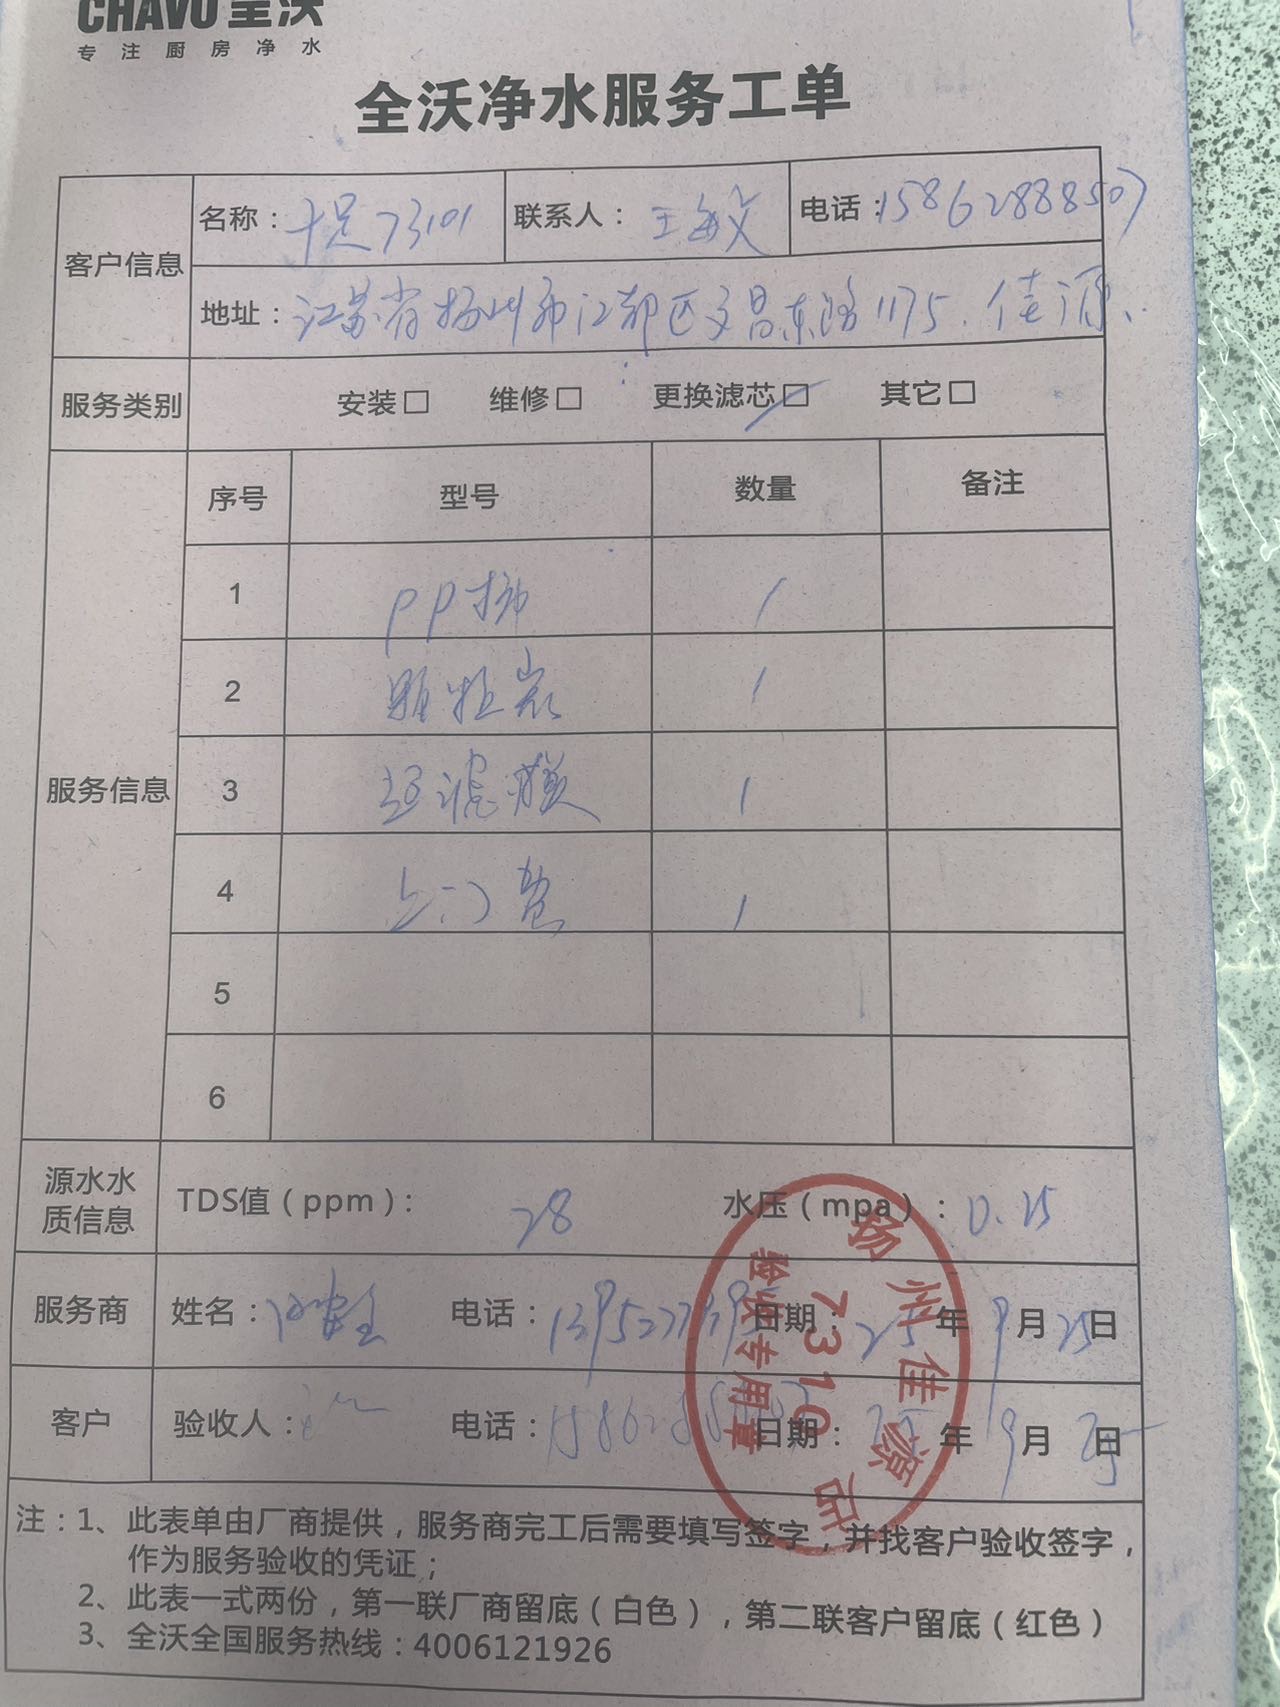 CHAVO 全沃
专注厨房净水
全沃净水服务工单
客户信息
名称：十足73101 联系人：王敏文 电话：15862888507
地址：江苏省扬州市江都区文昌东路1175.佳源
服务类别 安装□ 维修□ 更换滤芯☑ 其它□
服务信息
序号 型号 数量 备注
1 PP棉 1
2 颗粒炭 1
3 超滤膜 1
4 上门费 1
5
6
源水水质信息 TDS值（ppm）：28 水压（mpa）：0.25
服务商 姓名： 电话： 日期：25年9月25日
客户 验收人： 电话： 日期：25年9月25日
扬州佳源店
7310
验收专用章
注：1、此表单由厂商提供，服务商完工后需要填写签字，并找客户验收签字，
作为服务验收的凭证；
2、此表一式两份，第一联厂商留底（白色），第二联客户留底（红色）
3、全沃全国服务热线：4006121926